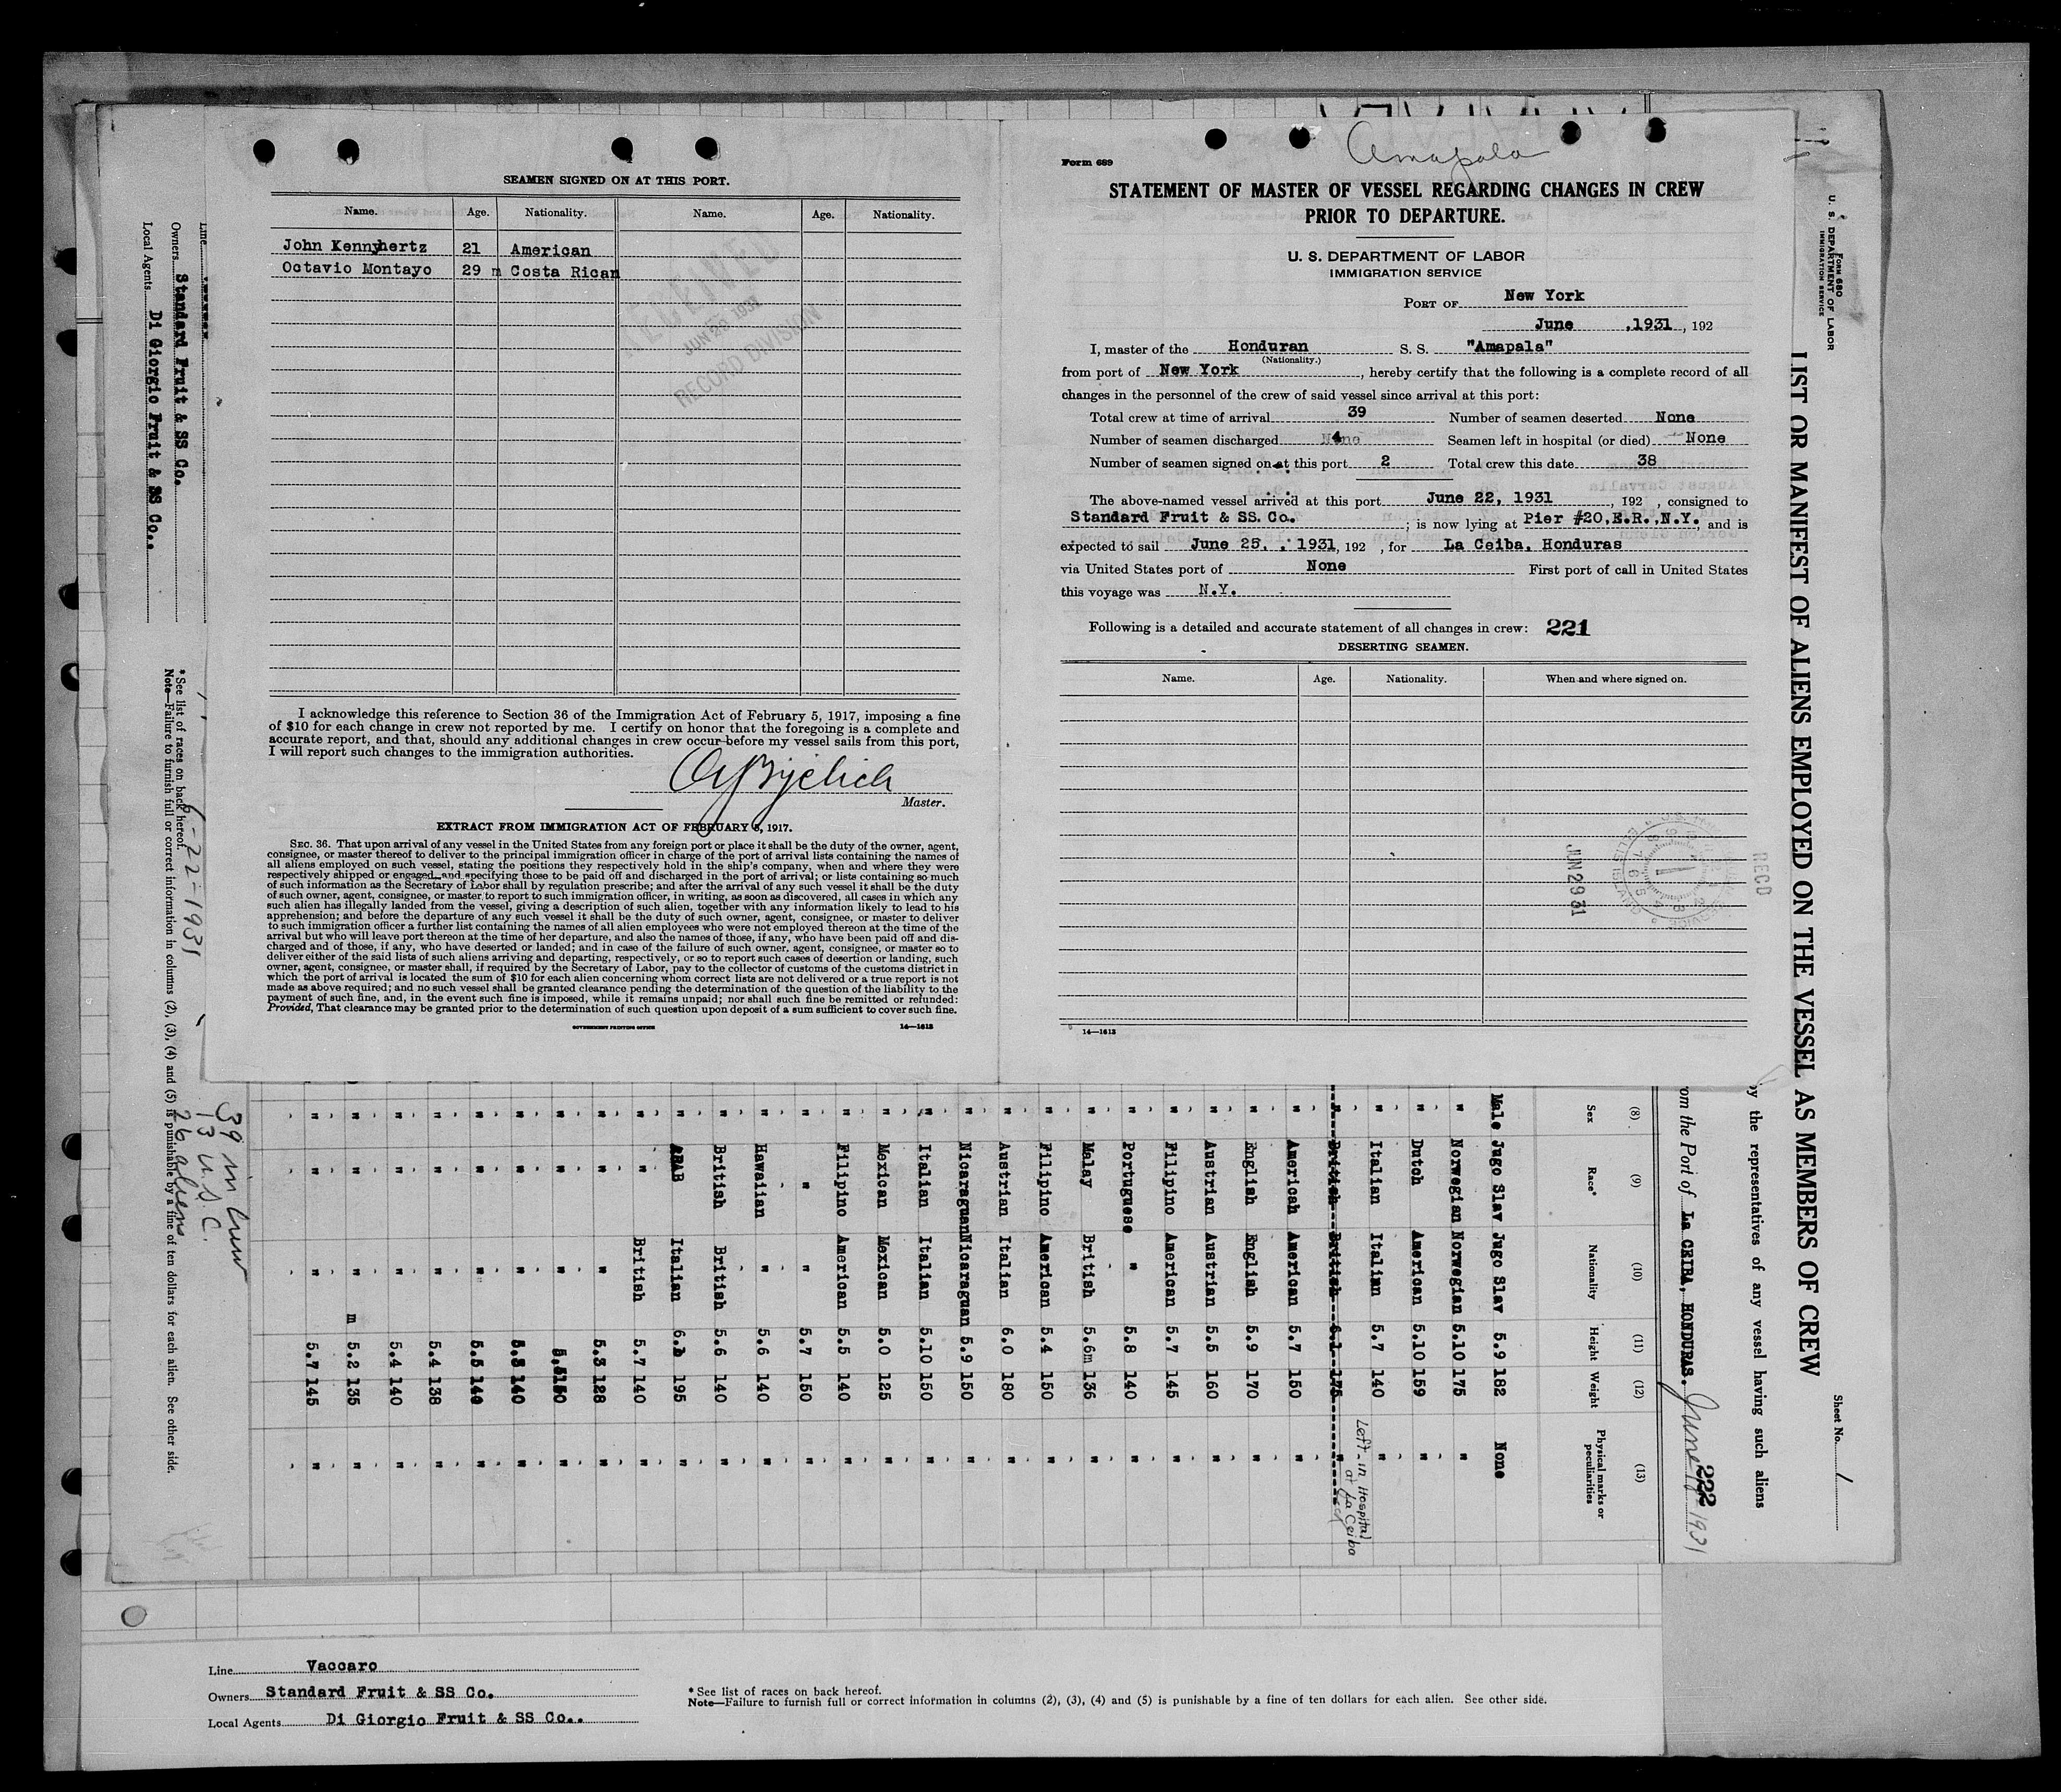 SEAMEN SIGNED ON AT THIS PORT.
Name. Age. Nationality. Name. Age. Nationality.
John Kennyhertz 21 American
Octavio Montayo 29 m Costa Rican
RECEIVED
JUN 29 1931
RECORD DIVISION
I acknowledge this reference to Section 36 of the Immigration Act of February 5, 1917, imposing a fine
of $10 for each change in crew not reported by me. I certify on honor that the foregoing is a complete and
accurate report, and that, should any additional changes in crew occur before my vessel sails from this port,
I will report such changes to the immigration authorities.
Master.
EXTRACT FROM IMMIGRATION ACT OF FEBRUARY 5, 1917.
SEC. 36. That upon arrival of any vessel in the United States from any foreign port or place it shall be the duty of the owner, agent,
consignee, or master thereof to deliver to the principal immigration officer in charge of the port of arrival lists containing the names of
all aliens employed on such vessel, stating the positions they respectively hold in the ship's company, when and where they were
respectively shipped or engaged, and specifying those to be paid off and discharged in the port of arrival; or lists containing so much
of such information as the Secretary of Labor shall by regulation prescribe; and after the arrival of any such vessel it shall be the duty
of such owner, agent, consignee, or master to report to such immigration officer, in writing, as soon as discovered, all cases in which any
such alien has illegally landed from the vessel, giving a description of such alien, together with any information likely to lead to his
apprehension; and before the departure of any such vessel it shall be the duty of such owner, agent, consignee, or master to deliver
to such immigration officer a further list containing the names of all alien employees who were not employed thereon at the time of the
arrival but who will leave port thereon at the time of her departure, and also the names of those, if any, who have been paid off and dis-
charged and of those, if any, who have deserted or landed; and in case of the failure of such owner, agent, consignee, or master so to
deliver either of the said lists of such aliens arriving and departing, respectively, or so to report such cases of desertion or landing, such
owner, agent, consignee, or master shall, if required by the Secretary of Labor, pay to the collector of customs of the customs district in
which the port of arrival is located the sum of $10 for each alien concerning whom correct lists are not delivered or a true report is not
made as above required; and no such vessel shall be granted clearance pending the determination of the question of the liability to the
payment of such fine, and, in the event such fine is imposed, while it remains unpaid; nor shall such fine be remitted or refunded:
Provided, That clearance may be granted prior to the determination of such question upon deposit of a sum sufficient to cover such fine.
GOVERNMENT PRINTING OFFICE 14—1613
Amapala
Form 689
STATEMENT OF MASTER OF VESSEL REGARDING CHANGES IN CREW
PRIOR TO DEPARTURE.
U. S. DEPARTMENT OF LABOR
IMMIGRATION SERVICE
PORT OF New York
June ,1931 , 192
I, master of the Honduran S. S. "Amapala"
(Nationality.)
from port of New York , hereby certify that the following is a complete record of all
changes in the personnel of the crew of said vessel since arrival at this port:
Total crew at time of arrival 39 Number of seamen deserted None
Number of seamen discharged 4 Seamen left in hospital (or died) None
Number of seamen signed on at this port 2 Total crew this date 38
The above-named vessel arrived at this port June 22, 1931 , 192 , consigned to
Standard Fruit & SS. Co. ; is now lying at Pier #20,E.R.,N.Y. and is
expected to sail June 25, , 1931, 192 , for La Ceiba, Honduras
via United States port of None First port of call in United States
this voyage was N.Y.
Following is a detailed and accurate statement of all changes in crew: 221
DESERTING SEAMEN.
Name. Age. Nationality. When and where signed on.
JUN 29 31
RECD
14—1613
Form 680
U. S. DEPARTMENT OF LABOR
IMMIGRATION SERVICE
LIST OR MANIFEST OF ALIENS EMPLOYED ON THE VESSEL AS MEMBERS OF CREW
Sheet No. 1
by the representatives of any vessel having such aliens
222
om the Port of La CEIBA, HONDURAS. June 1931
(8) (9) (10) (11) (12) (13)
Sex Race* Nationality Height Weight Physical marks or peculiarities
Male Jugo Slav Jugo Slav 5.9 182 None
" Norwegian Norwegian 5.10 175 "
" Dutch American 5.10 159 "
" Italian Italian 5.7 140 "
Left in Hospital
at La Ceiba
" British British 6.1 175 "
" American American 5.7 150 "
" English English 5.9 170 "
" Austrian Austrian 5.5 160 "
" Filipino American 5.7 145 "
" Portuguese " 5.8 140 "
" Malay British 5.6m 136 "
" Filipino American 5.4 150 "
" Austrian Italian 6.0 180 "
" Nicaraguan Nicaraguan 5.9 150 "
" Italian Italian 5.10 150 "
" Mexican Mexican 5.0 125 "
" Filipino American 5.5 140 "
" " " 5.7 150 "
" Hawaiian " 5.6 140 "
" British British 5.6 140 "
" ARAB Italian 195 "
" " British 5.7 140 "
" " " 5.3 128 "
" " "
" " " 5.3 140 "
" " " 5.5 140 "
" " " 5.4 138 "
" " " 5.4 140 "
" " " m 5.2 135 "
" " " 5.7 145 "
39 in crew
13 U.S.C.
26 aliens
6-22-1931
Line
Owners Standard Fruit & SS Co.
Local Agents Di Giorgio Fruit & SS Co..
*See list of races on back hereof.
Note—Failure to furnish full or correct information in columns (2), (3), (4) and (5) is punishable by a fine of ten dollars for each alien. See other side.
Line Vaccaro
Owners Standard Fruit & SS Co.
Local Agents Di Giorgio Fruit & SS Co..
* See list of races on back hereof.
Note—Failure to furnish full or correct information in columns (2), (3), (4) and (5) is punishable by a fine of ten dollars for each alien. See other side.